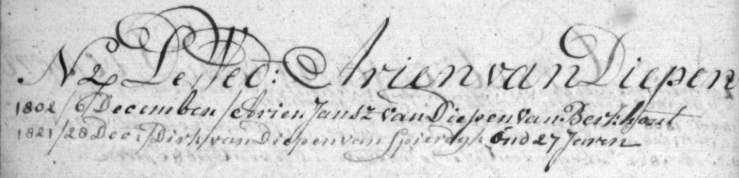 N 2 De Wed: Arien van Diepen
1802 / 6 December / Arien Jansz van Diepen van Berkhout
1821 / 28 Dec: / Dirk van Diepen van Spierdyk oud 27 Jaren